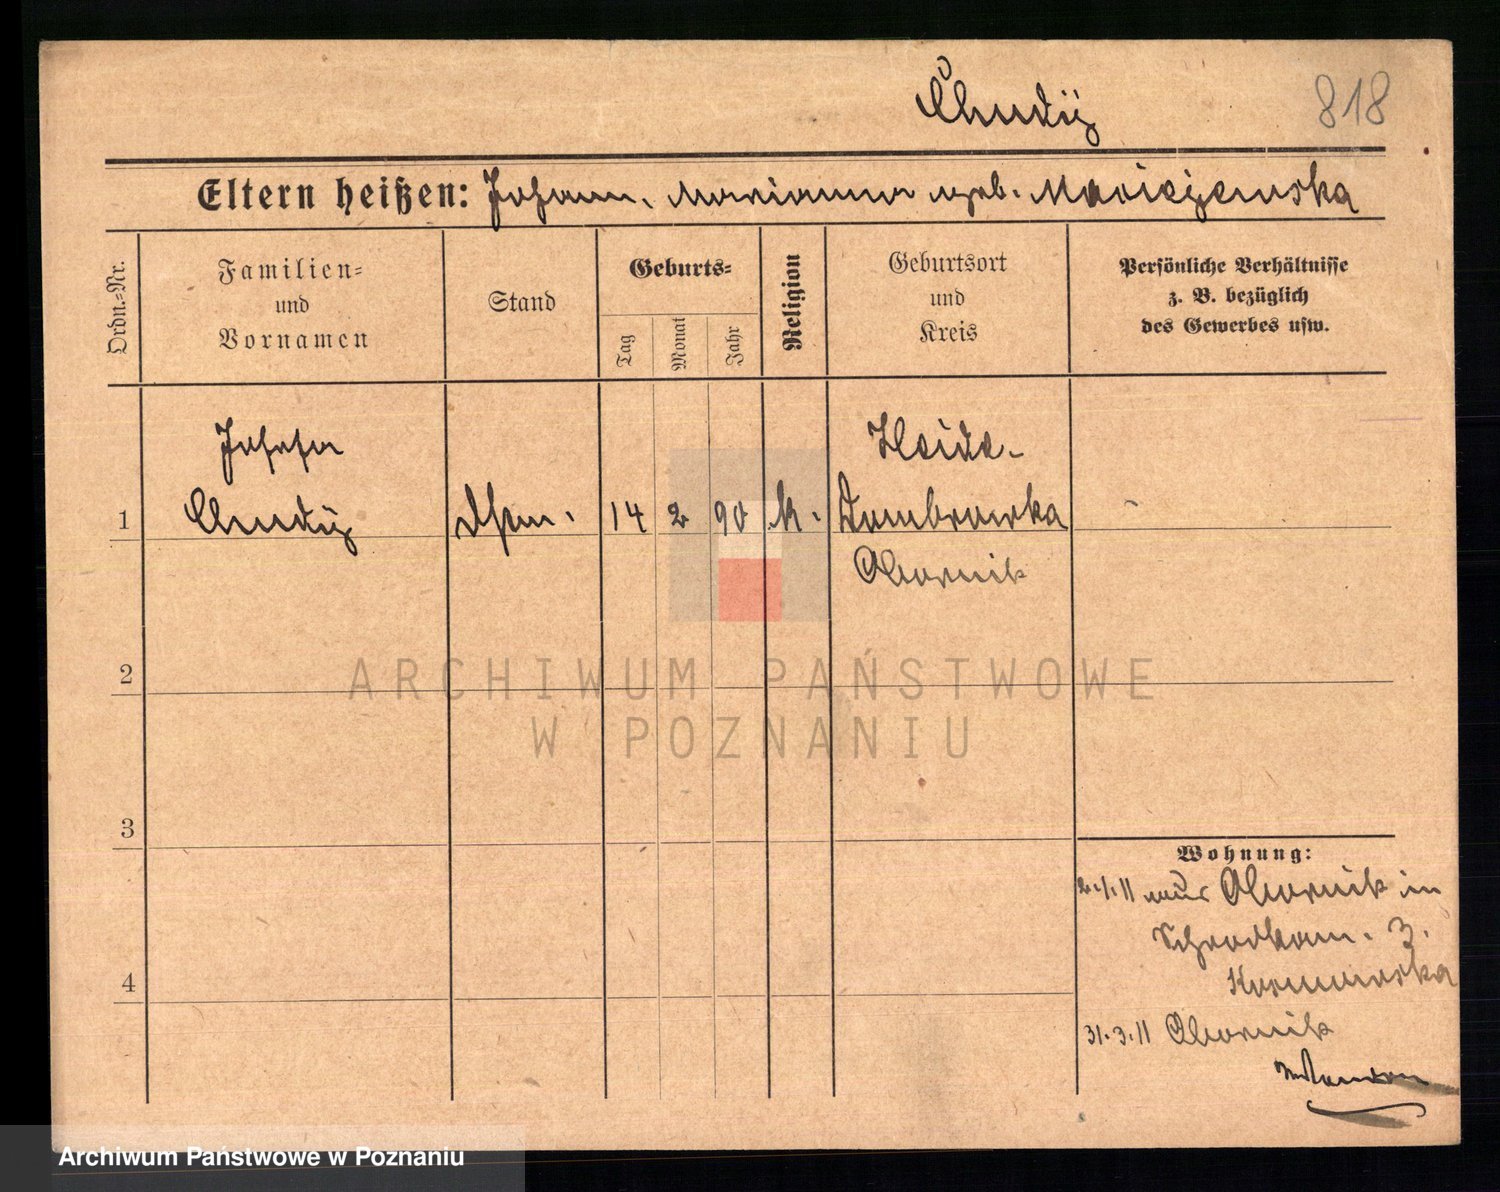 Chudy
818
Eltern heißen: Johann, Marianna geb. Maciejewska
Ordn.-Nr.
Familien-
und
Vornamen
Stand
Geburts-
Tag
Monat
Jahr
Religion
Geburtsort
und
Kreis
Persönliche Verhältnisse
z. B. bezüglich
des Gewerbes usw.
Josefa
1 Chudy 14 2 90 k.
Heide-
Dombrowka
Obornik
2
3
4
Wohnung:
2.1.11 aus Obornik in
3.
31.3.11 Obornik
ARCHIWUM PAŃSTWOWE
W POZNANIU
Archiwum Państwowe w Poznaniu